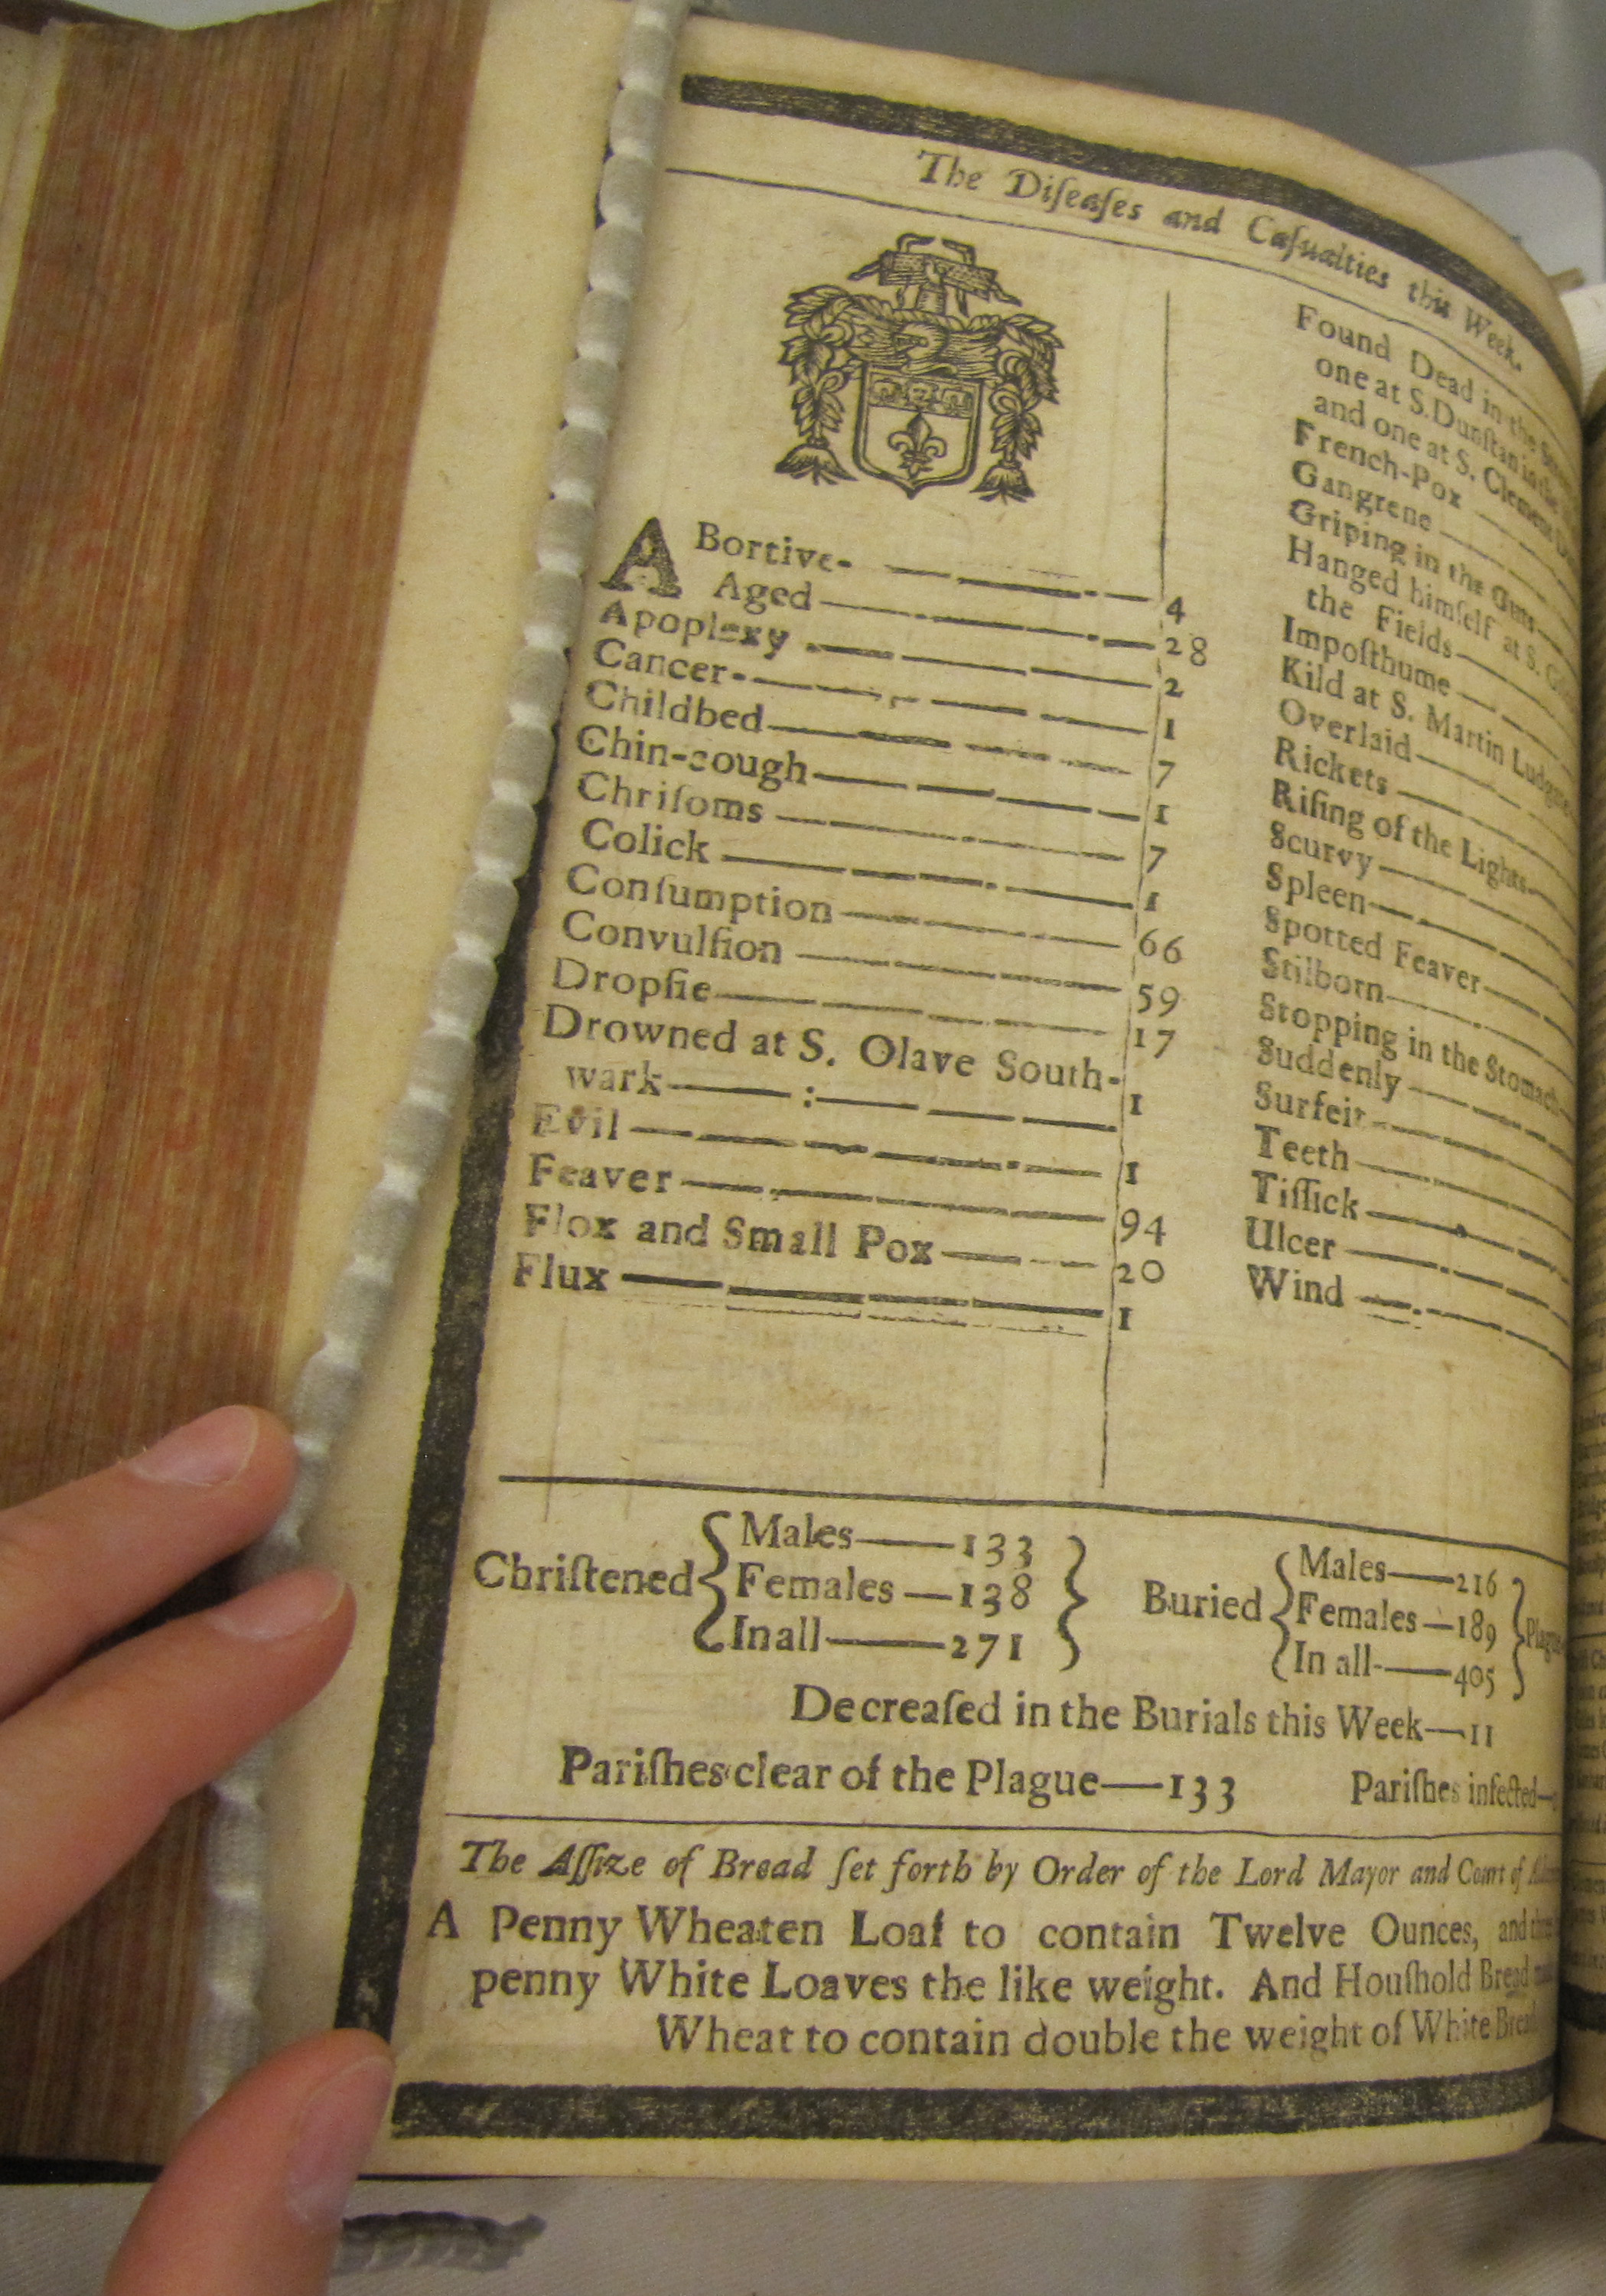 The Diſeaſes and Caſualties this Week.
ABortive 4
Aged 28
Apoplexy 2
Cancer 1
Childbed 7
Chin-cough 1
Chriſoms 7
Colick 1
Conſumption 66
Convulſion 59
Dropſie 17
Drowned at S. Olave South-
wark 1
Evil 1
Feaver 94
Flox and Small Pox 20
Flux 1
Found Dead in the
one at S. Dunſtan in the
and one at S. Clement
French-Pox
Gangrene
Griping in the Guts
Hanged himſelf at S.
the Fields
Impoſthume
Kild at S. Martin
Overlaid
Rickets
Riſing of the Lights
Scurvy
Spleen
Spotted Feaver
Stilborn
Stopping in the Stomach
Suddenly
Surfeit
Teeth
Tiſſick
Ulcer
Wind
Chriſtened
Males—133
Females—138
In all—271
Buried
Males—216
Females—189
In all—405
Decreaſed in the Burials this Week—11
Pariſhes clear of the Plague—133 Pariſhes infected—
The Aſſize of Bread ſet forth by Order of the Lord Mayor and Court of
A Penny Wheaten Loaf to contain Twelve Ounces, and
penny White Loaves the like weight. And Houſhold Bread
Wheat to contain double the weight of White